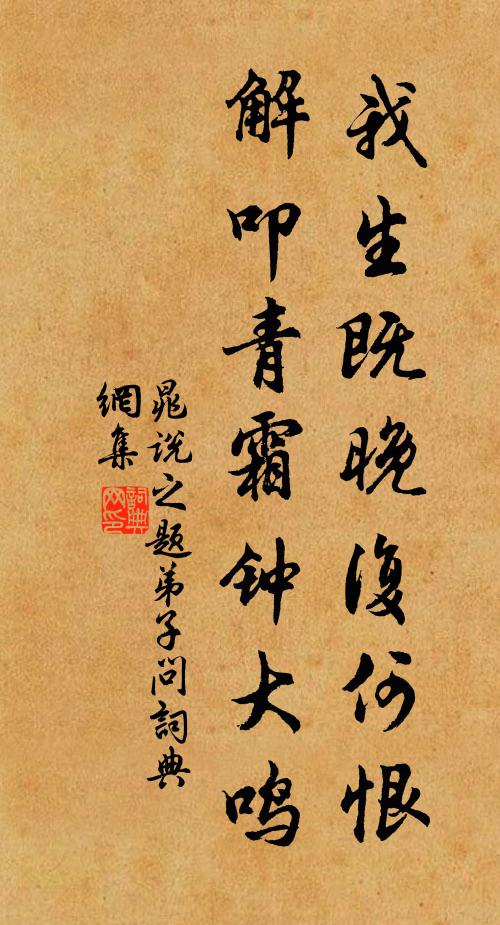 我生既晚復何恨
解叩青霜钟大鸣
晁说之题弟子问詞典
網集
詞典网印